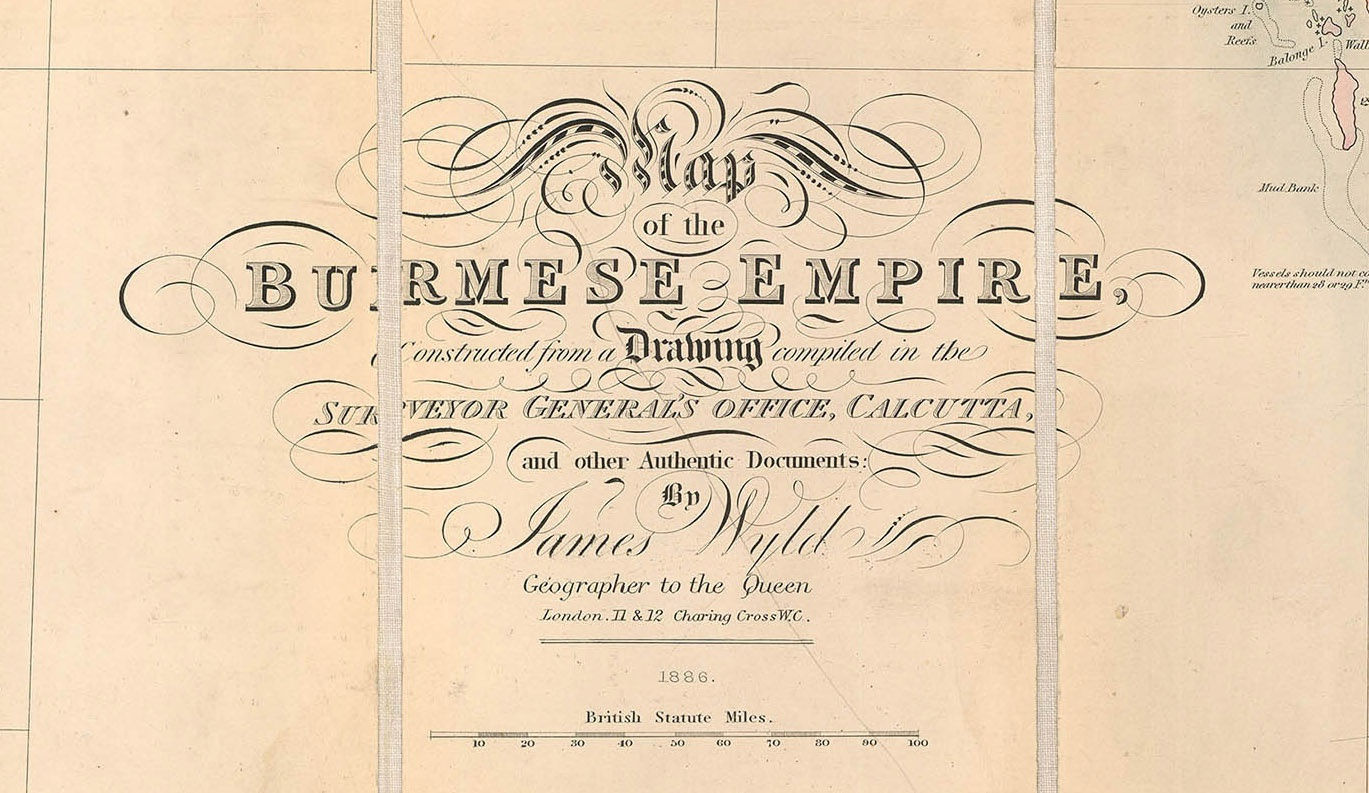 Oysters I.
and
Reefs
Balonge I.
Mud Bank
Vessels should not
nearer than 28 or 29 F.ms
Map
of the
BURMESE EMPIRE,
Constructed from a Drawing compiled in the
SURVEYOR GENERAL'S OFFICE, CALCUTTA,
and other Authentic Documents:
By
James Wyld
Geographer to the Queen
London. 11 & 12 Charing Cross W.C.
1886.
British Statute Miles.
10 20 30 40 50 60 70 80 90 100